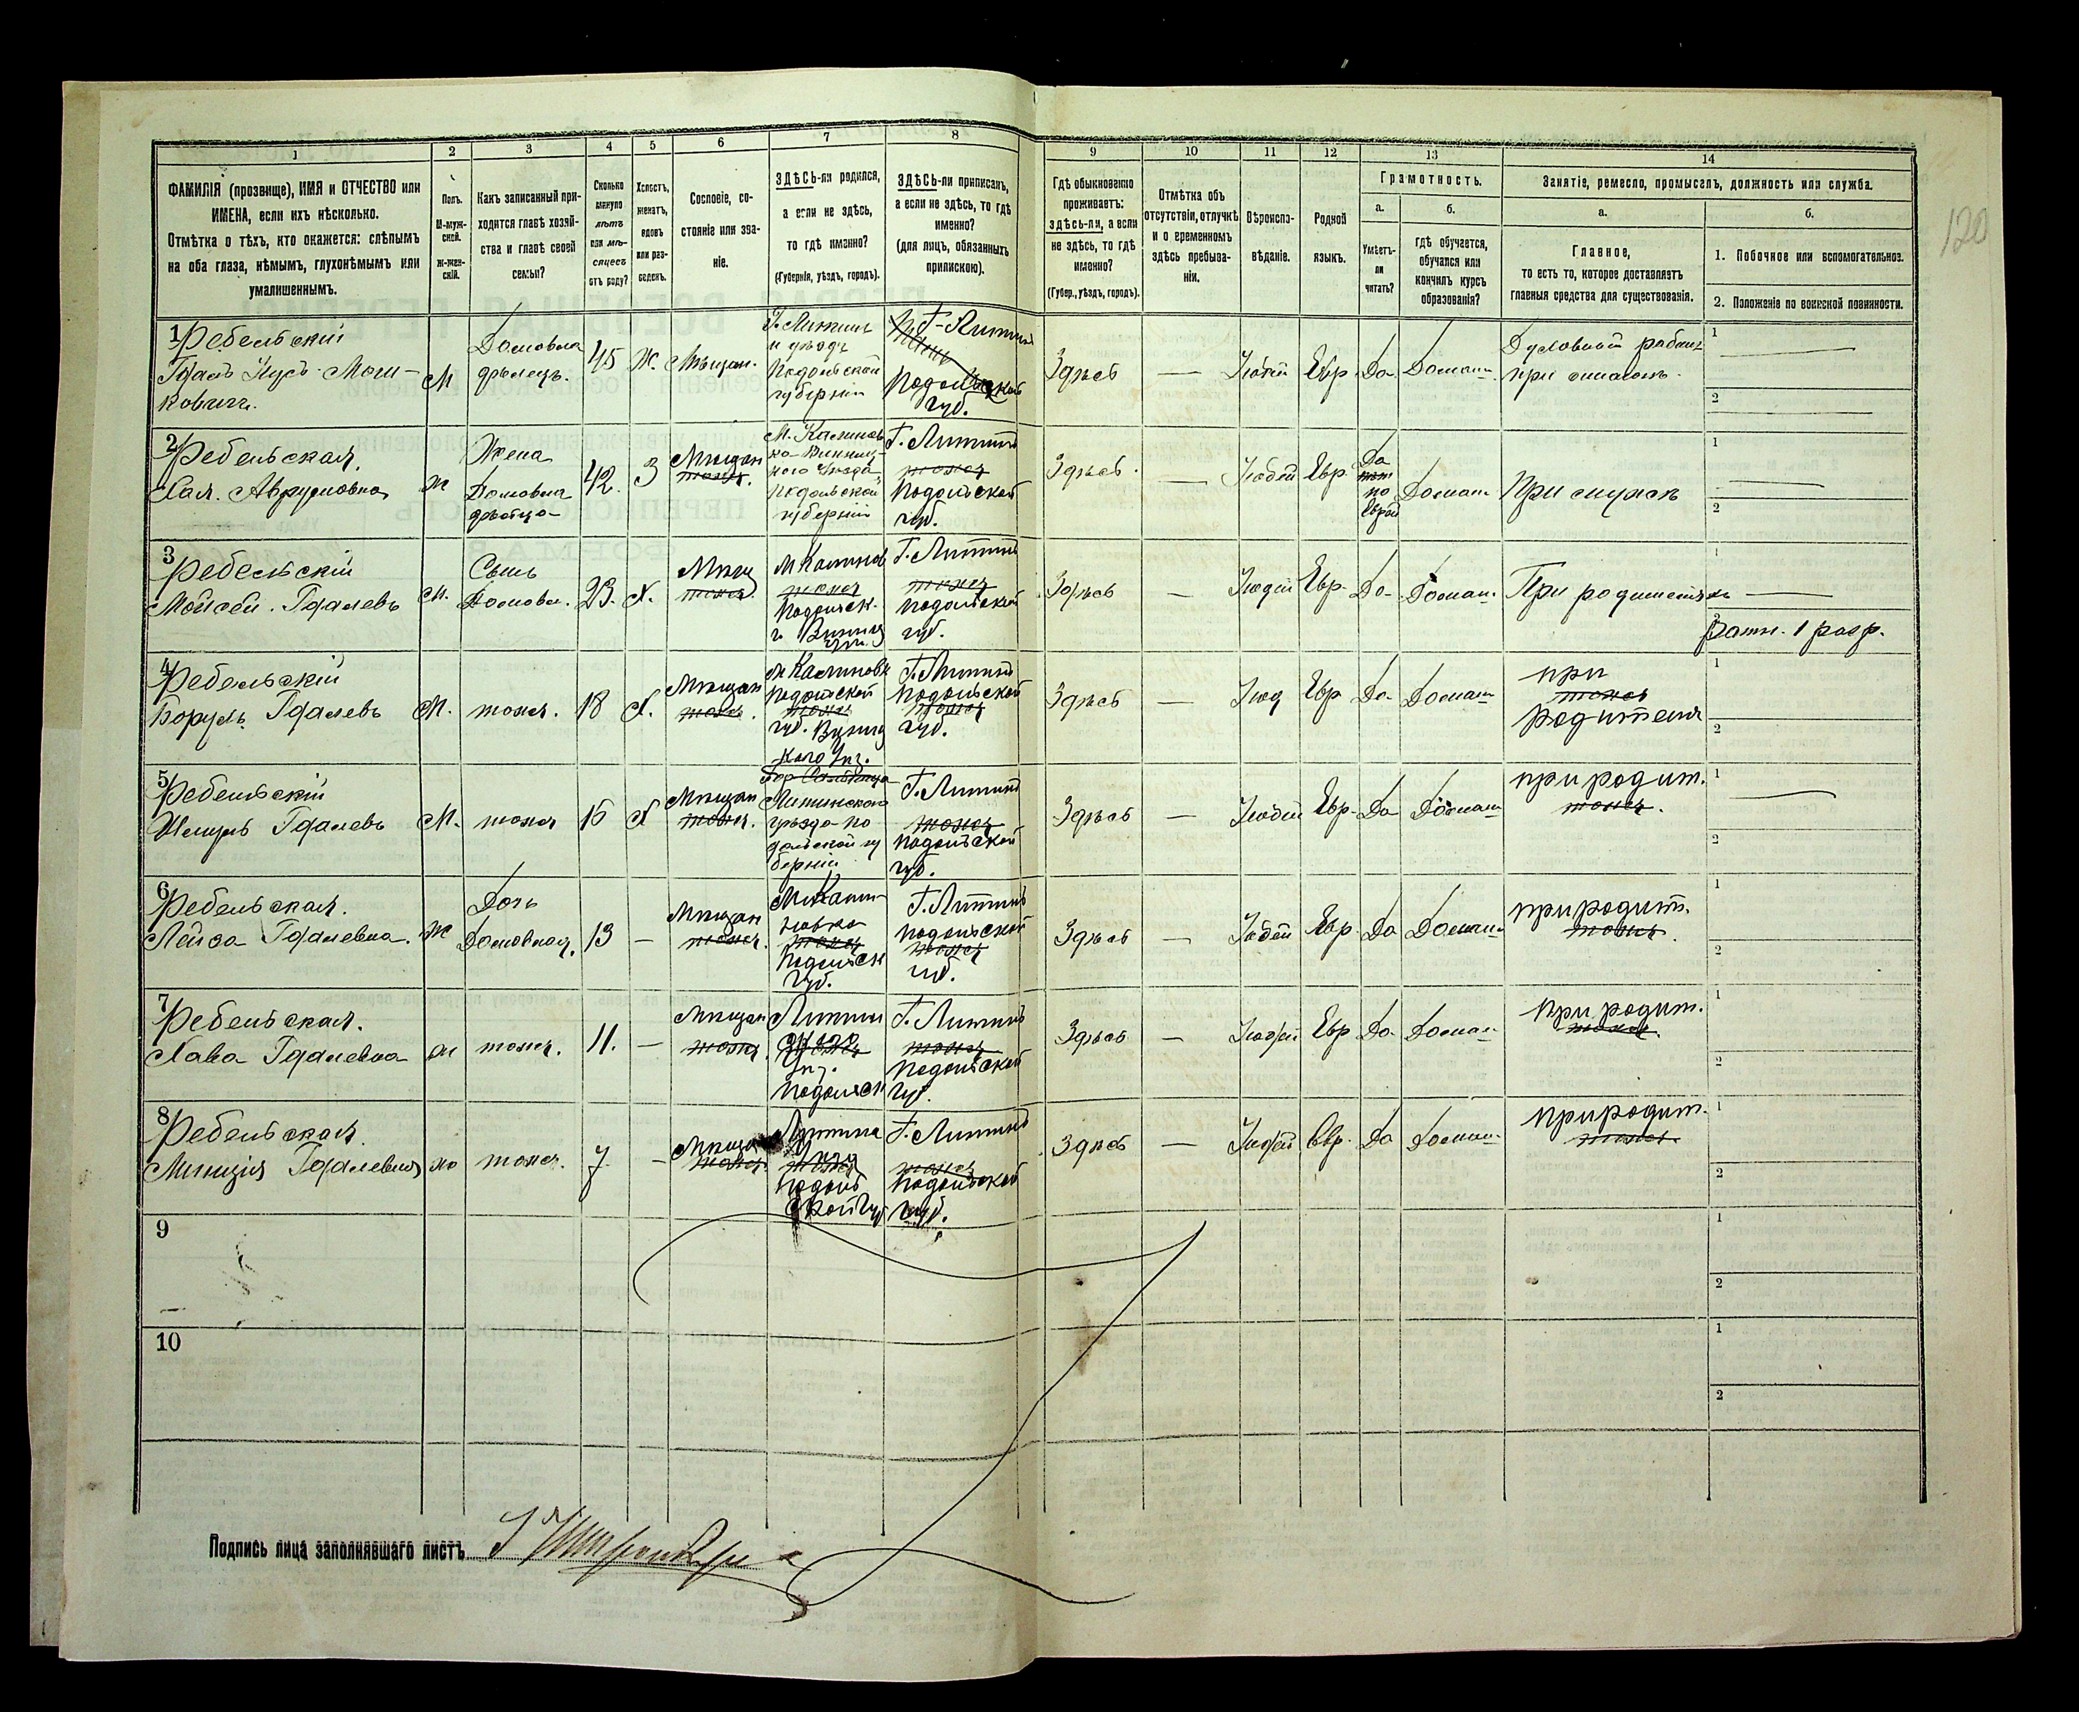 120
1 2 3 4 5 6 7 8 9 10 11 12 13 14
ФАМИЛІЯ (прозвище), ИМЯ и ОТЧЕСТВО или
ИМЕНА, если ихъ нѣсколько.
Отмѣтка о тѣхъ, кто окажется: слѣпымъ
на оба глаза, нѣмымъ, глухонѣмымъ или
умалишеннымъ.
Полъ.
М-муж-
ской.
ж-жен-
скій.
Какъ записанный при-
ходится главѣ хозяй-
ства и главѣ своей
семьи?
Сколько
минуло
лѣтъ
или мѣ-
сяцевъ
отъ роду?
Холостъ,
женатъ,
вдовъ
или раз-
веденъ.
Сословіе, со-
стояніе или зва-
ніе.
ЗДѢСЬ-ли родился,
а если не здѣсь,
то гдѣ именно?
(Губернія, уѣздъ, городъ).
ЗДѢСЬ-ли приписанъ,
а если не здѣсь, то гдѣ
именно?
(для лицъ, обязанныхъ
припискою).
Гдѣ обыкновенно
проживаетъ:
здѣсь-ли, а если
не здѣсь, то гдѣ
именно?
(Губер., уѣздъ, городъ).
Отмѣтка объ
отсутствіи, отлучкѣ
и о временномъ
здѣсь пребыва-
ніи.
Вѣроиспо-
вѣданіе.
Родной
языкъ.
Грамотность.
а.
Умѣетъ-
ли
читать?
б.
гдѣ обучается,
обучался или
кончилъ курсъ
образованія?
Занятіе, ремесло, промыселъ, должность или служба.
а.
Главное,
то есть то, которое доставляетъ
главныя средства для существованія.
б.
1. Побочное или вспомогательное.
2. Положеніе по воинской повинности.
1
Ребельскій
М
Домовла
дѣлецъ.
45
Ж.
Мѣщан.
Г. Литинъ
и уѣздъ
Подольской
губерніи
Г. Литинъ
Подольской
губ.
Здѣсь
—
Іудей
Евр.
Да
Домаш.
1
2
2
Ребельская.
Хая. Аврумовна
ж
Жена
Домовла
дѣльца
42.
З
Мѣщан
тоже.
М. Калинов
ка Винниц
кого уѣзда
Подольской
губерніи
Г. Литинъ
тоже
Подольской
губ.
Здѣсь.
—
Іюдей
Евр.
Да
по
Еврей
Домаш
При мужѣ
1
2
3
Ребельскій
Мойсей. Гдалевъ
м.
Сынъ
Домовл.
23.
Х.
Мѣщ
тоже.
М Калинов
тоже
Подольск.
г. Винниц
Г. Литинъ
тоже
Подольской
губ.
Здѣсь
—
Іюдей
Евр.
Да
Домаш.
При родителяхъ
1
2
Ратн. 1 разр.
4
Ребельскій
Борухъ Гдалевъ
М.
тоже.
18
Х.
Мѣщан
тоже.
М Калиновк
Подольской
тоже
губ. Винниц
кого Уѣз.
Г. Литинъ
Подольской
тоже
губ.
Здѣсь
—
Іюд
Евр
Да
Домаш
при
тоже
родителя
1
2
5
Ребельскій
Шмуль Гдалевъ
М.
тоже
15
Х
Мѣщан
тоже.
Литинского
уѣзда По
дольской гу
берніи
Г. Литинъ
тоже
Подольской
губ.
Здѣсь
—
Іюдей
Евр.
Да
Домаш
при родит.
тоже.
1
2
6
Ребельская.
Лейза Гдалевна.
Ж
Дочь
Домовлад.
13
—
Мѣщан
тоже.
М. Калин
новка
тоже
Подольск
Губ.
Г. Литинъ
Подольской
тоже
губ.
Здѣсь
—
Іюдей
Евр.
Да
Домаш
при родит.
тоже.
1
2
7
Ребельская.
Хава Гдалевна
ж
тоже.
11.
—
Мѣщан
тоже.
Литин
тоже
Уѣз.
Подольск
Г. Литинъ
тоже
Подольской
губ.
Здѣсь
—
Іюдей
Евр
Да
Домаш
При родит.
тоже.
1
2
8
Ребельская.
Гдалевна
ж
тоже.
7.
—
Мѣщан
тоже.
Литина
тоже
Подоль
ской Губ
Г. Литинъ
тоже
Подольской
губ.
Здѣсь
—
Іюдей
Евр.
Да
Домаш
При родит.
тоже
1
2
9
1
2
10
1
2
Подпись лица заполнявшаго листъ